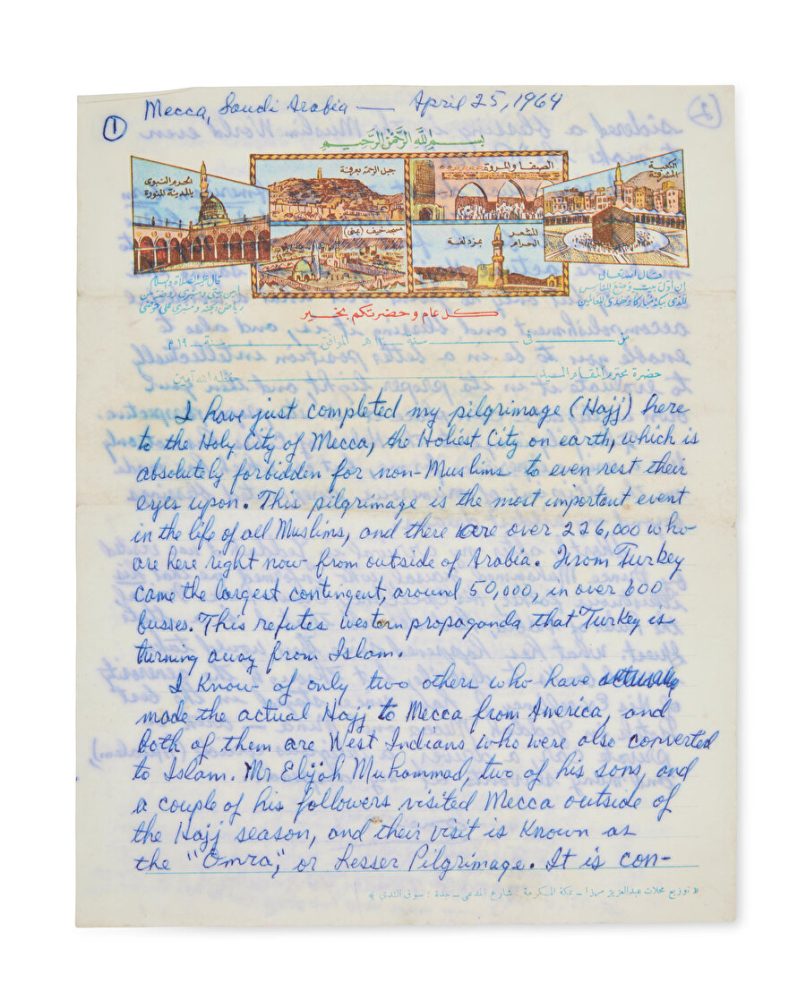 Mecca, Saudi Arabia — April 25, 1964
1
بسم الله الرحمن الرحيم
الحرم النبوي
بالمدينة المنورة
جبل الرحمة بعرفة
مسجد خيف (منى)
الصفا والمروة
المشعر
الحرام
بمزدلفة
الكعبة
المشرفة
قال الله تعالى
إن أول بيت وضع للناس
للذي ببكة مباركا وهدى للعالمين
قال عليه الصلاة والسلام
كل عام وحضرتكم بخير
في سنة ١٣ هـ الموافق سنة ١٩ م
حضرة محترم المقام السيد حفظه الله آمين
I have just completed my pilgrimage (Hajj) here
to the Holy City of Mecca, the Holiest City on earth, which is
absolutely forbidden for non-Muslims to even rest their
eyes upon. This pilgrimage is the most important event
in the life of all Muslims, and there are over 226,000 who
are here right now from outside of Arabia. From Turkey
came the largest contingent, around 50,000, in over 600
busses. This refutes western propaganda that Turkey is
turning away from Islam.
I know of only two others who have actually
made the actual Hajj to Mecca from America, and
both of them are West Indians who were also converted
to Islam. Mr Elijah Muhammad, two of his sons, and
a couple of his followers visited Mecca outside of
the Hajj season, and their visit is known as
the "Omra," or Lesser Pilgrimage. It is con-